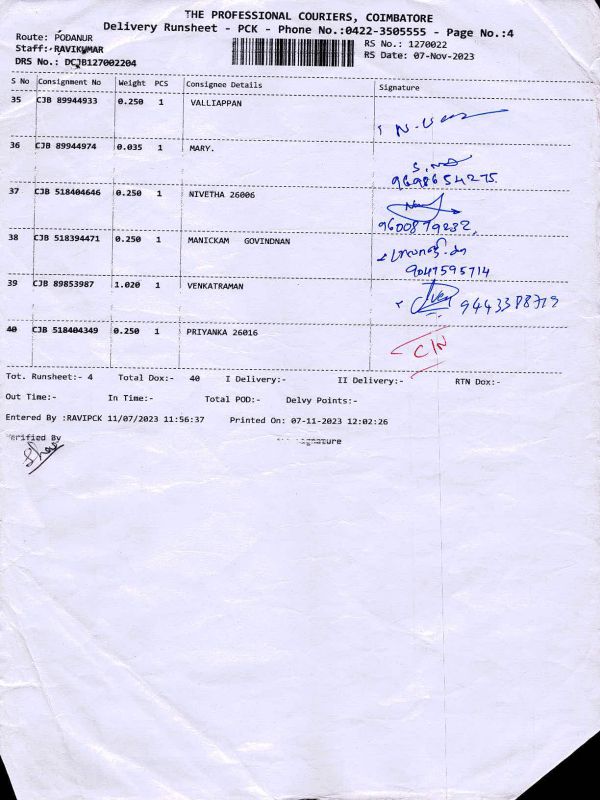 THE PROFESSIONAL COURIERS, COIMBATORE
Delivery Runsheet - PCK - Phone No.:0422-3505555 - Page No.:4
Route: PODANUR
RS No.: 1270022
Staff: RAVIKUMAR
RS Date: 07-Nov-2023
DRS No.: DCJB127002204
S No Consignment No Weight PCS Consignee Details Signature
35 CJB 89944933 0.250 1 VALLIAPPAN
36 CJB 89944974 0.035 1 MARY.
9698654275
37 CJB 518404646 0.250 1 NIVETHA 26006
9600879232
38 CJB 518394471 0.250 1 MANICKAM GOVINDNAN
9047595714
39 CJB 89853987 1.020 1 VENKATRAMAN
9443388719
40 CJB 518404349 0.250 1 PRIYANKA 26016
C/N
Tot. Runsheet:- 4 Total Dox:- 40 I Delivery:- II Delivery:- RTN Dox:-
Out Time:- In Time:- Total POD:- Delvy Points:-
Entered By :RAVIPCK 11/07/2023 11:56:37 Printed On: 07-11-2023 12:02:26
Verified By signature